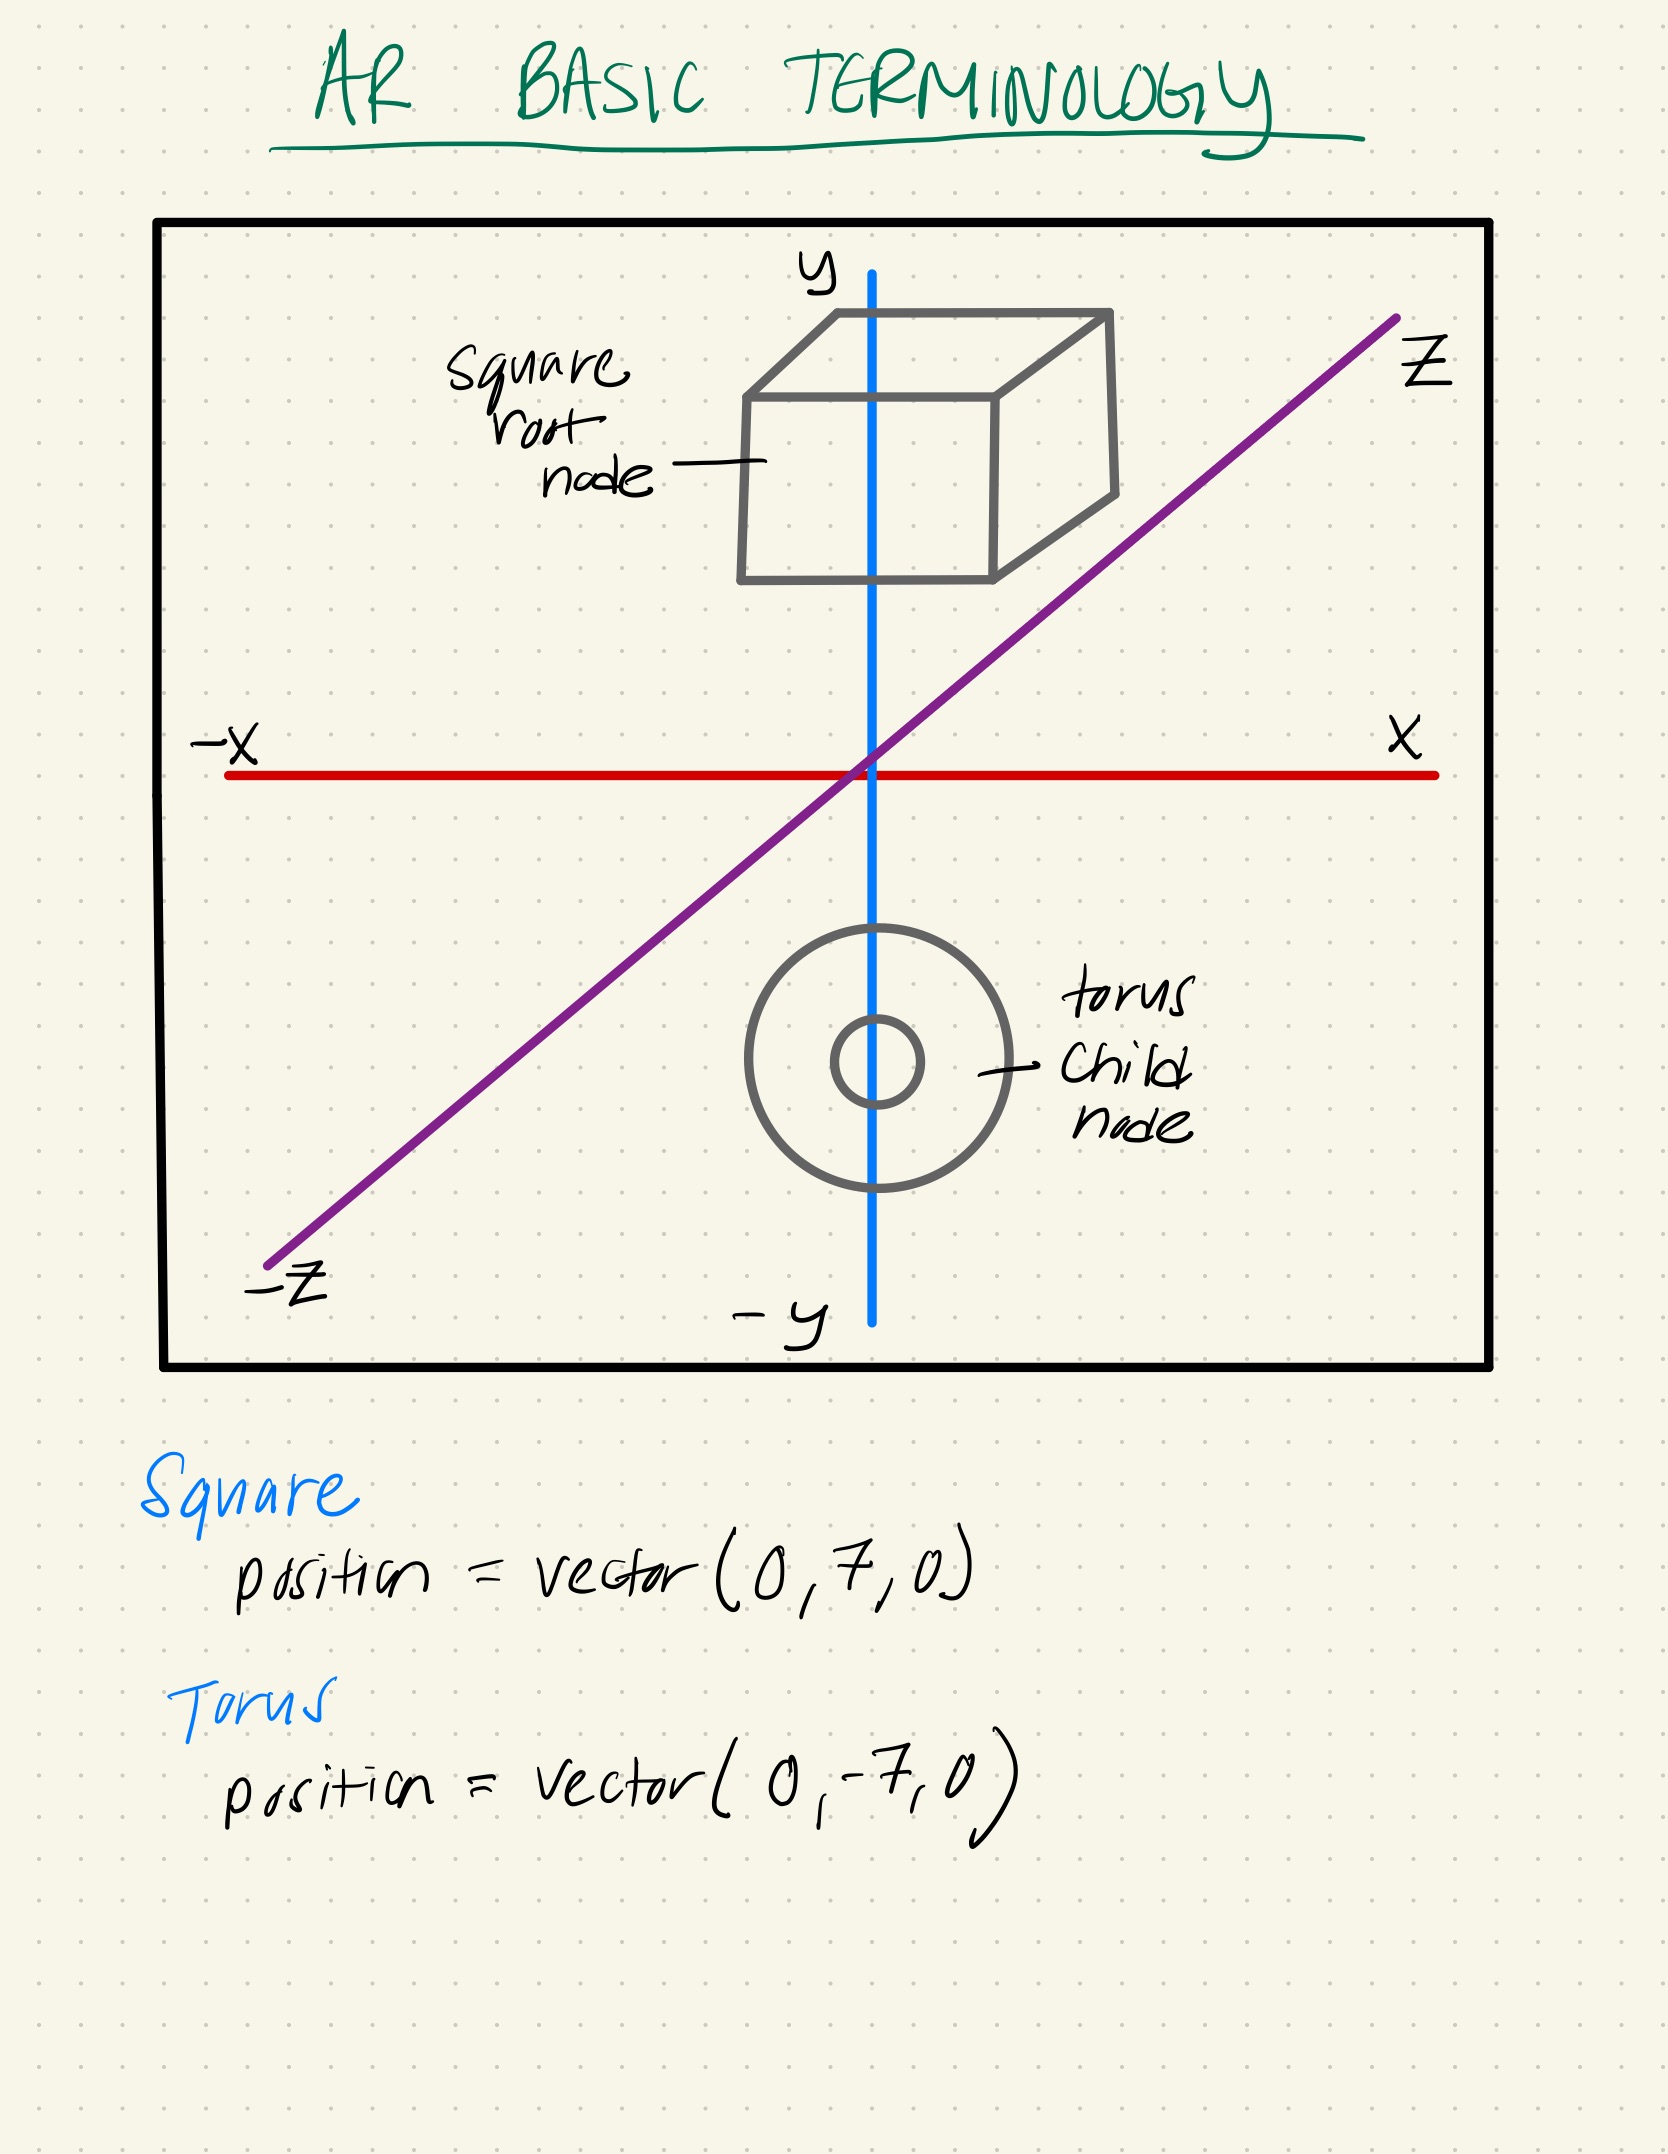 AR BASIC TERMINOLOGY
y
square
root
node
z
-x
x
torus
child
node
-z
-y
Square
position = vector(0,7,0)
Torus
position = vector(0,-7,0)